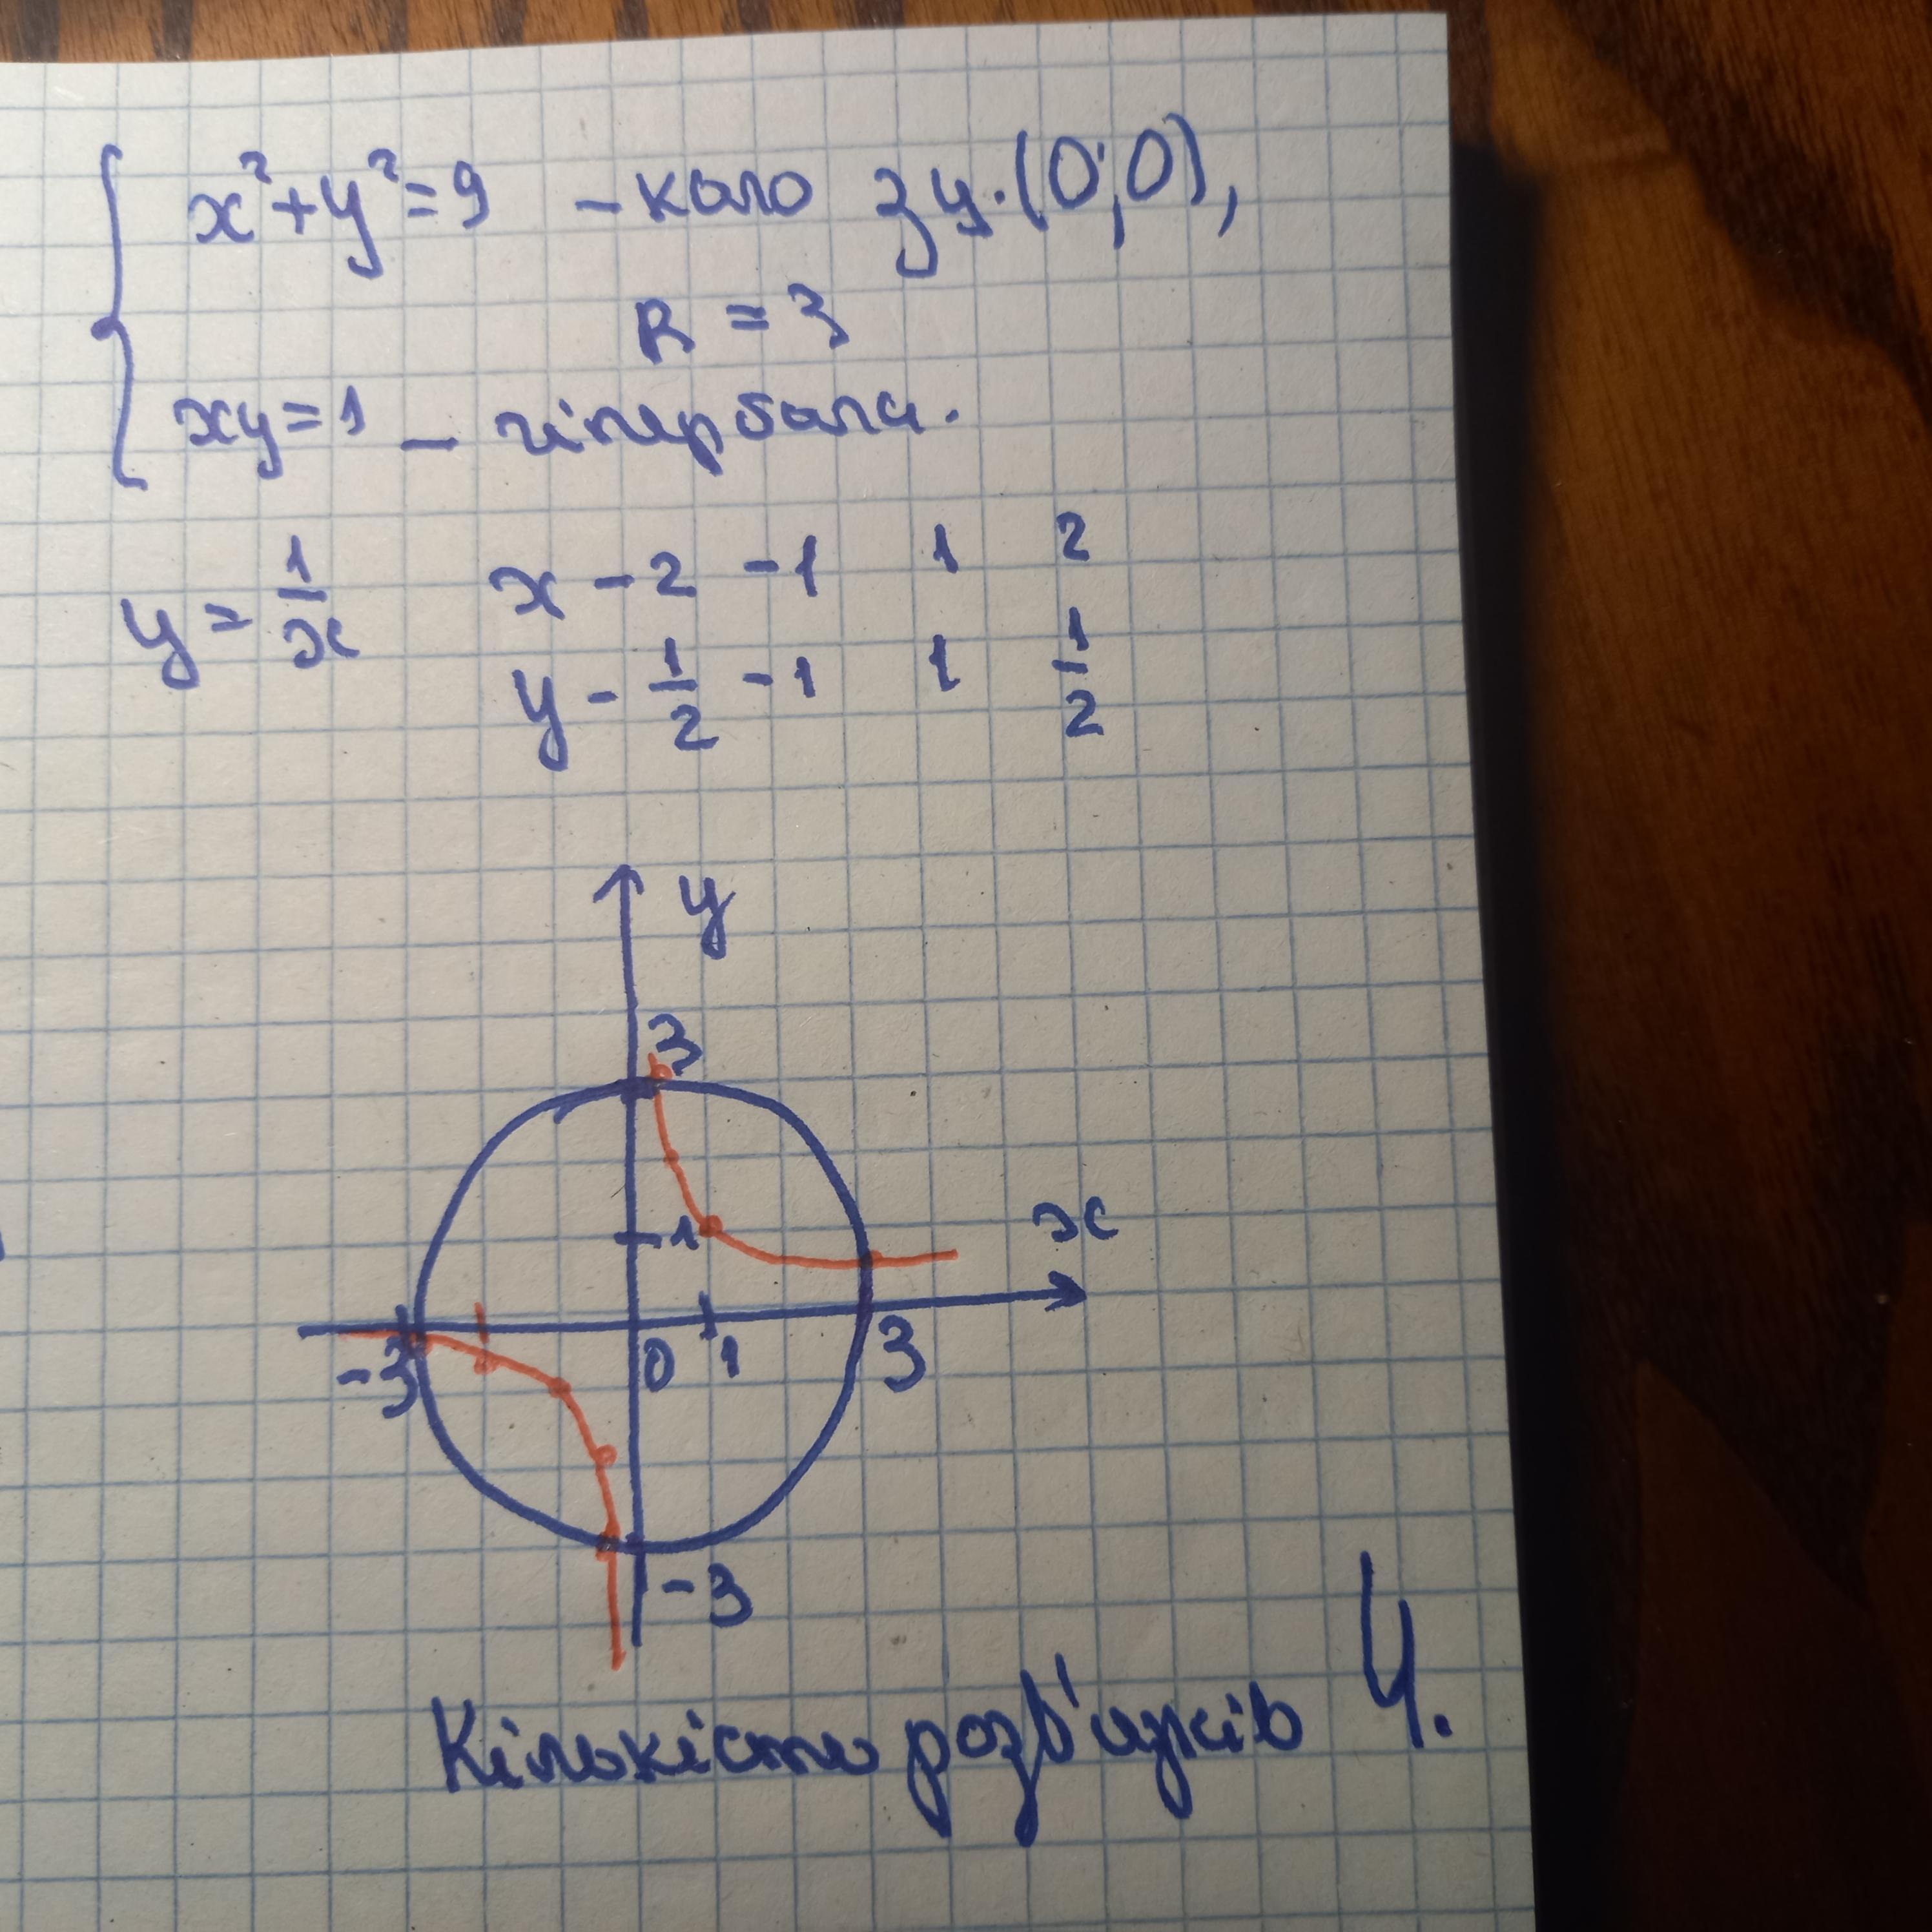 x²+y²=9 – коло з ц.(0;0),
R = 3
xy=1 – гіпербола.
y = 1/x
x -2 -1 1 2
y -1/2 -1 1 1/2
y
3
1
x
-3 0 1 3
-3
Кількість розв'язків 4.